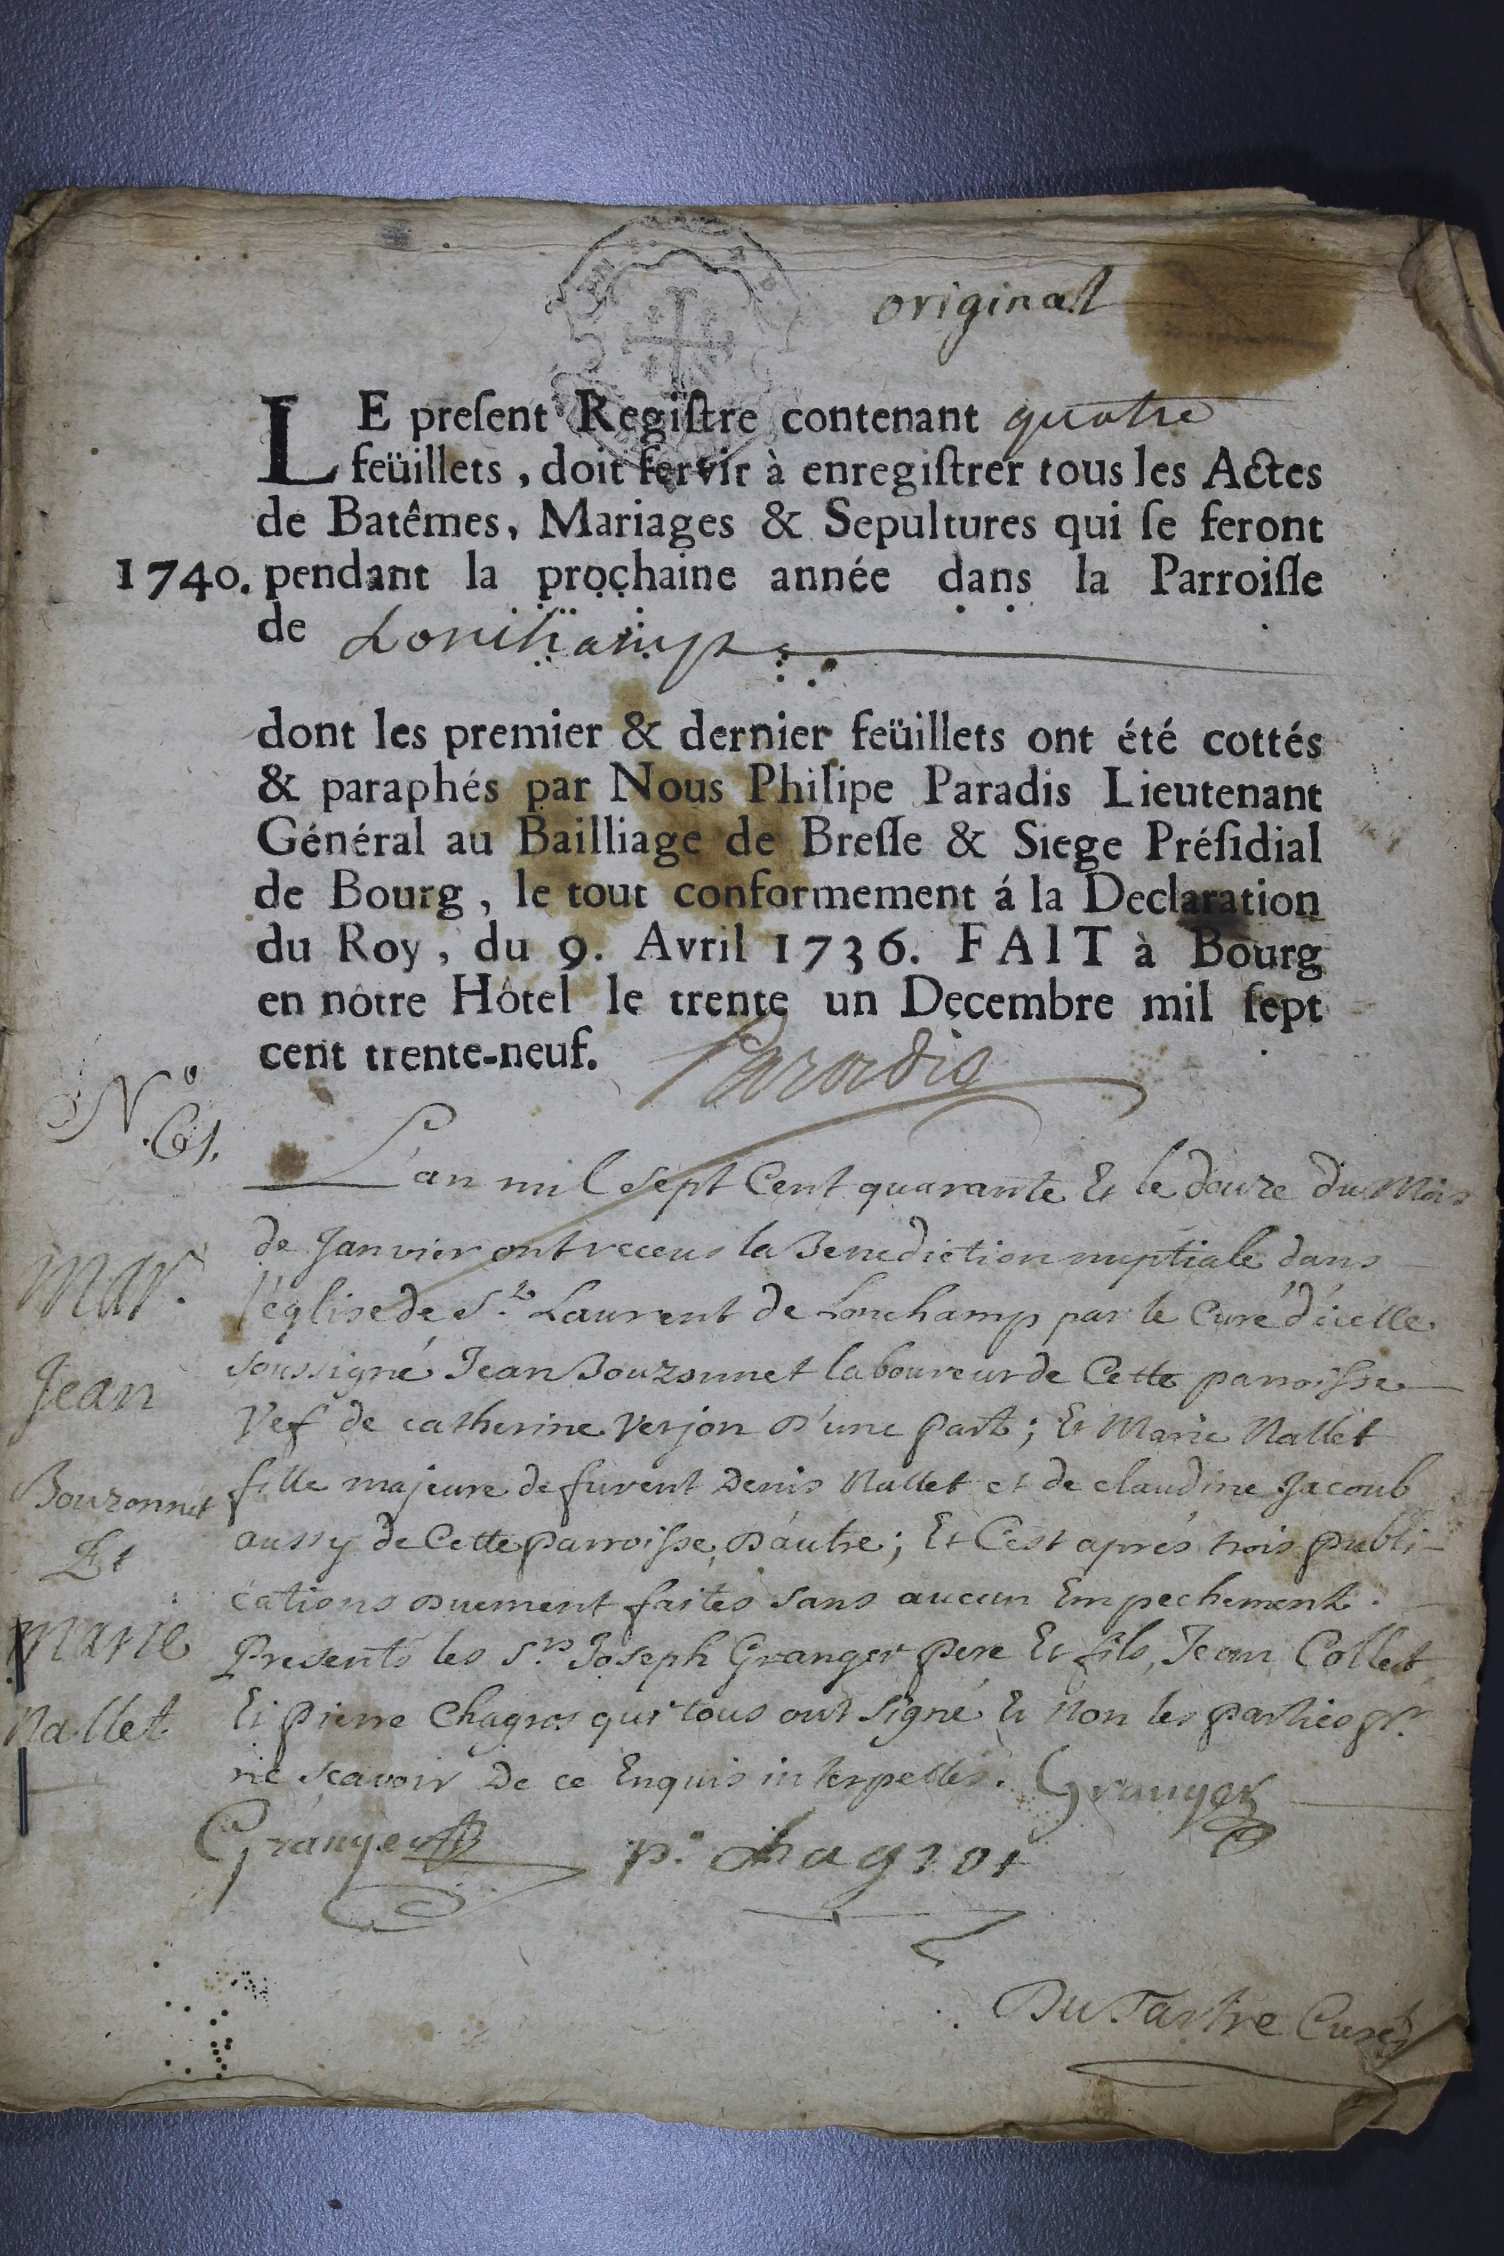 original
LE preſent Regiſtre contenant quatre
feüillets, doit ſervir à enregiſtrer tous les Actes
de Batêmes, Mariages & Sepultures qui ſe feront
1740. pendant la prochaine année dans la Parroiſſe
de Lonchamp
dont les premier & dernier feüillets ont été cottés
& paraphés par Nous Philipe Paradis Lieutenant
Général au Bailliage de Breſſe & Siege Préſidial
de Bourg, le tout conformement á la Declaration
du Roy, du 9. Avril 1736. FAIT à Bourg
en nôtre Hôtel le trente un Decembre mil ſept
cent trente-neuf. Paradis
N.º
L'an mil sept Cent quarante Et le douze du Mois
de Janvier ont receus la Benediction nuptiale dans
l'église de St. Laurent de Lonchamp par le Curé d'icelle
soussigné Jean Bouzonnet laboureur de Cette parroisse
Vef de catherine Verjon D'une part; Et Marie Nallet
fille majeure de furent Denis Nallet et de claudine Jacoub
aussy de Cette parroisse, D'autre; Et C'est aprés trois publi-
cations Duement faites sans aucun Empechement.
Presents les Srs Joseph Granger pere Et fils, Jean Collet
Et pierre Chagros qui tous ont signé Et Non les parties pr.
ne scavoir De ce Enquis interpellés. Granger
Granger p. chagros
Du Tartre Curé
Mar.
Jean
Bouzonnet
Et
Marie
Nallet